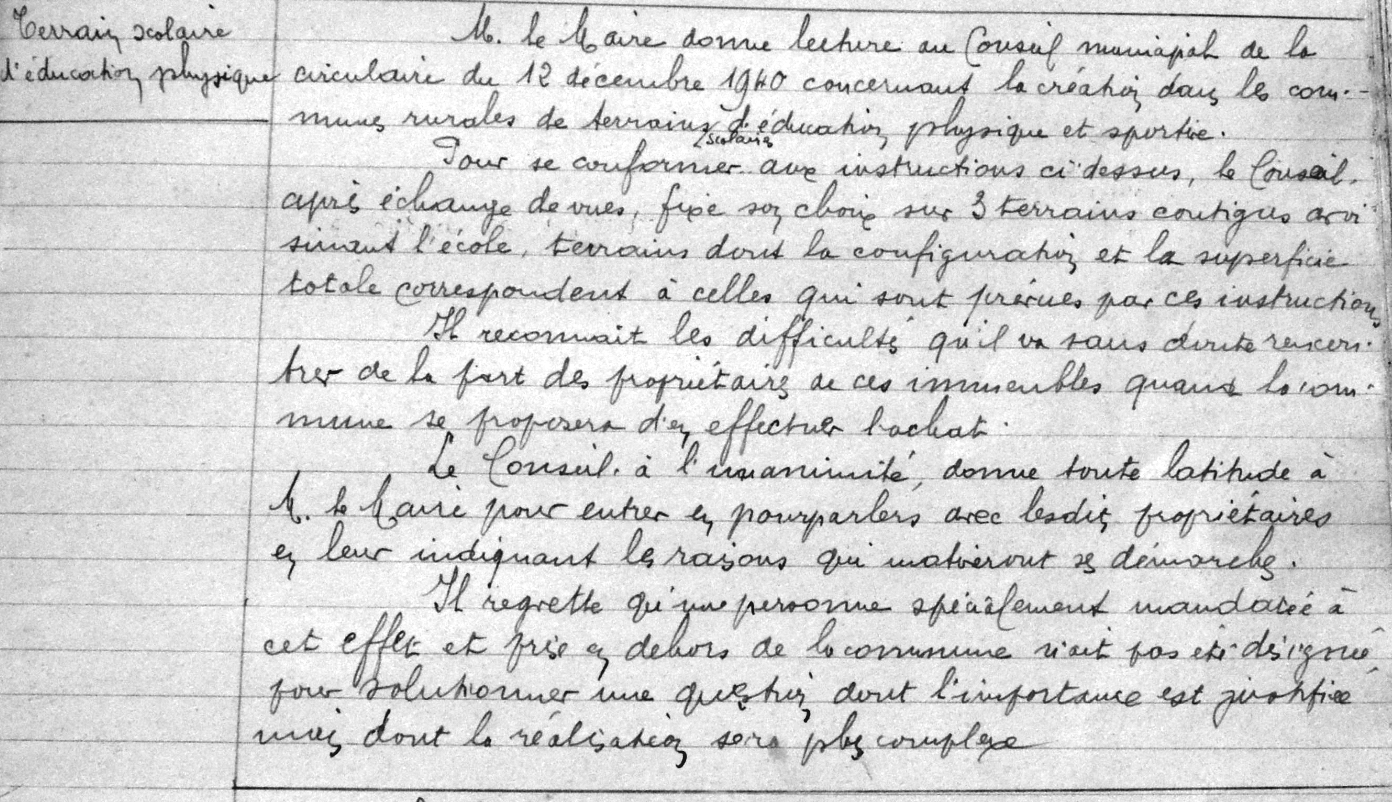 Terrain scolaire
d'éducation physique
M. le Maire donne lecture au Conseil municipal de la
circulaire du 12 décembre 1940 concernant la création dans les com-
munes rurales de terrains scolaires d'éducation physique et sportive.
Pour se conformer aux instructions ci-dessus, le Conseil,
après échange de vues, fixe son choix sur 3 terrains contigus avoi
sinant l'école, terrains dont la configuration et la superficie
totale correspondent à celles qui sont prévues par ces instructions
Il reconnait les difficultés qu'il va sans doute rencon-
trer de la part des propriétaires de ces immeubles quand la com-
mune se proposera d'en effectuer l'achat.
Le Conseil, à l'unanimité, donne toute latitude à
M. le Maire pour entrer en pourparlers avec lesdits propriétaires
en leur indiquant les raisons qui motiveront ses démarches.
Il regrette qu'une personne spécialement mandatée à
cet effet et prise en dehors de la commune n'ait pas été désignée
pour solutionner une question dont l'importance est justifiée
mais dont la réalisation sera plus complexe